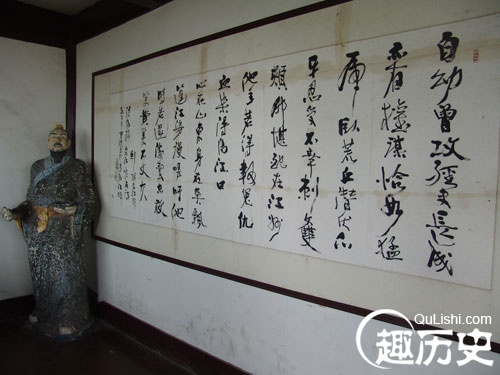 自幼曾攻經史長成
亦有權謀恰如猛
虎卧荒丘潛伏爪
牙忍受不幸刺雙
頰那堪配在江州
他年若得報冤仇
血染潯陽江口
心在山東身在吳飄
蓬江海漫嗟吁他
時若遂凌雲志敢
笑黃巢不丈夫
QuLishi.com
趣历史